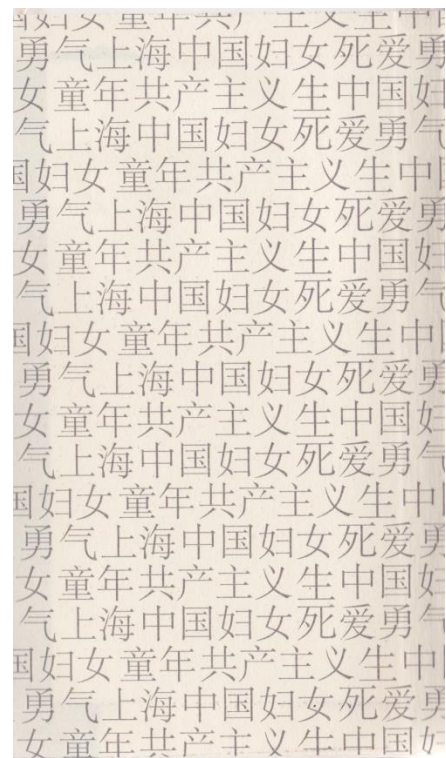 国妇女童年共产主义生中
勇气上海中国妇女死爱勇
女童年共产主义生中国妇
气上海中国妇女死爱勇气
国妇女童年共产主义生中
勇气上海中国妇女死爱勇
女童年共产主义生中国妇
气上海中国妇女死爱勇气
国妇女童年共产主义生中
勇气上海中国妇女死爱勇
女童年共产主义生中国妇
气上海中国妇女死爱勇气
国妇女童年共产主义生中
勇气上海中国妇女死爱勇
女童年共产主义生中国妇
气上海中国妇女死爱勇气
国妇女童年共产主义生中
勇气上海中国妇女死爱勇
女童年共产主义生中国妇